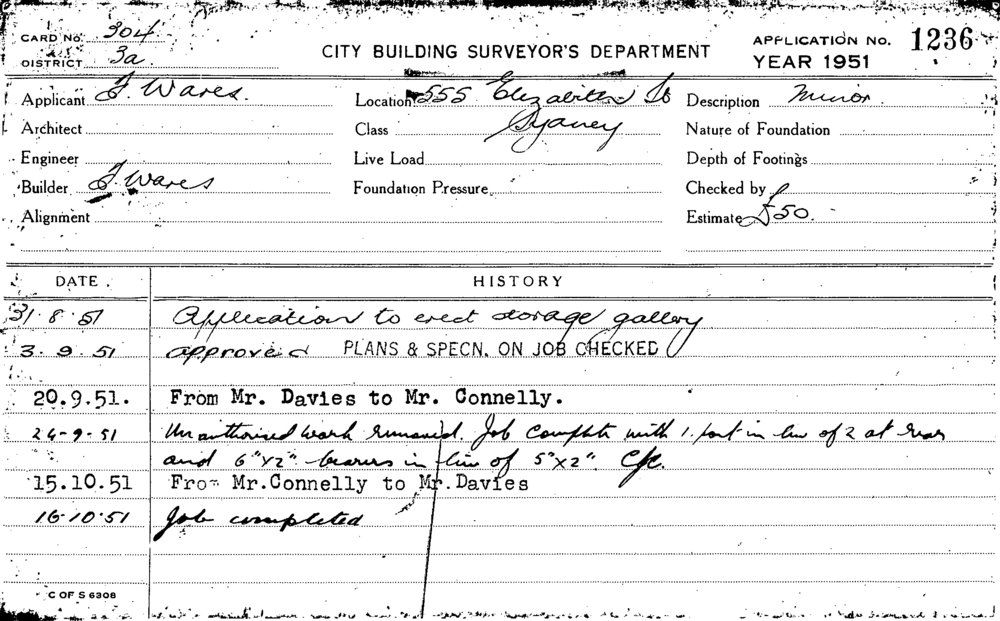 CARD No. 304
DISTRICT 3a.
CITY BUILDING SURVEYOR'S DEPARTMENT
APPLICATION No. 1236
YEAR 1951
Applicant J. Wares.
Location 555 Elizabeth St
Description Minor
Architect
Class Sydney
Nature of Foundation
Engineer
Live Load
Depth of Footings
Builder J. Wares
Foundation Pressure
Checked by
Alignment
Estimate £50.
DATE
HISTORY
31.8.51 Application to erect storage gallery
3.9.51 approved PLANS & SPECN. ON JOB CHECKED
20.9.51. From Mr. Davies to Mr. Connelly.
24-9-51 Unauthorised work removed. Job complete with 1 post in lieu of 2 at rear
and 6"x2" bearers in lieu of 5"x2".
15.10.51 From Mr.Connelly to Mr.Davies
16.10.51 Job completed
C OF S 6308